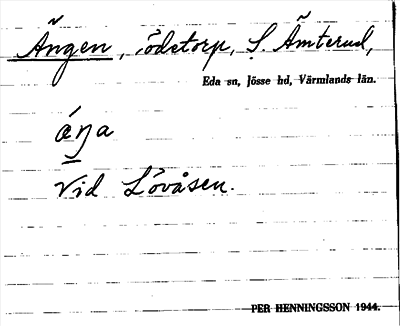 Ängen, ödetorp, S. Ämterud,
Eda sn, Jösse hd, Värmlands län.
ǽŋa
Vid Lövåsen.
PER HENNINGSSON 1944.